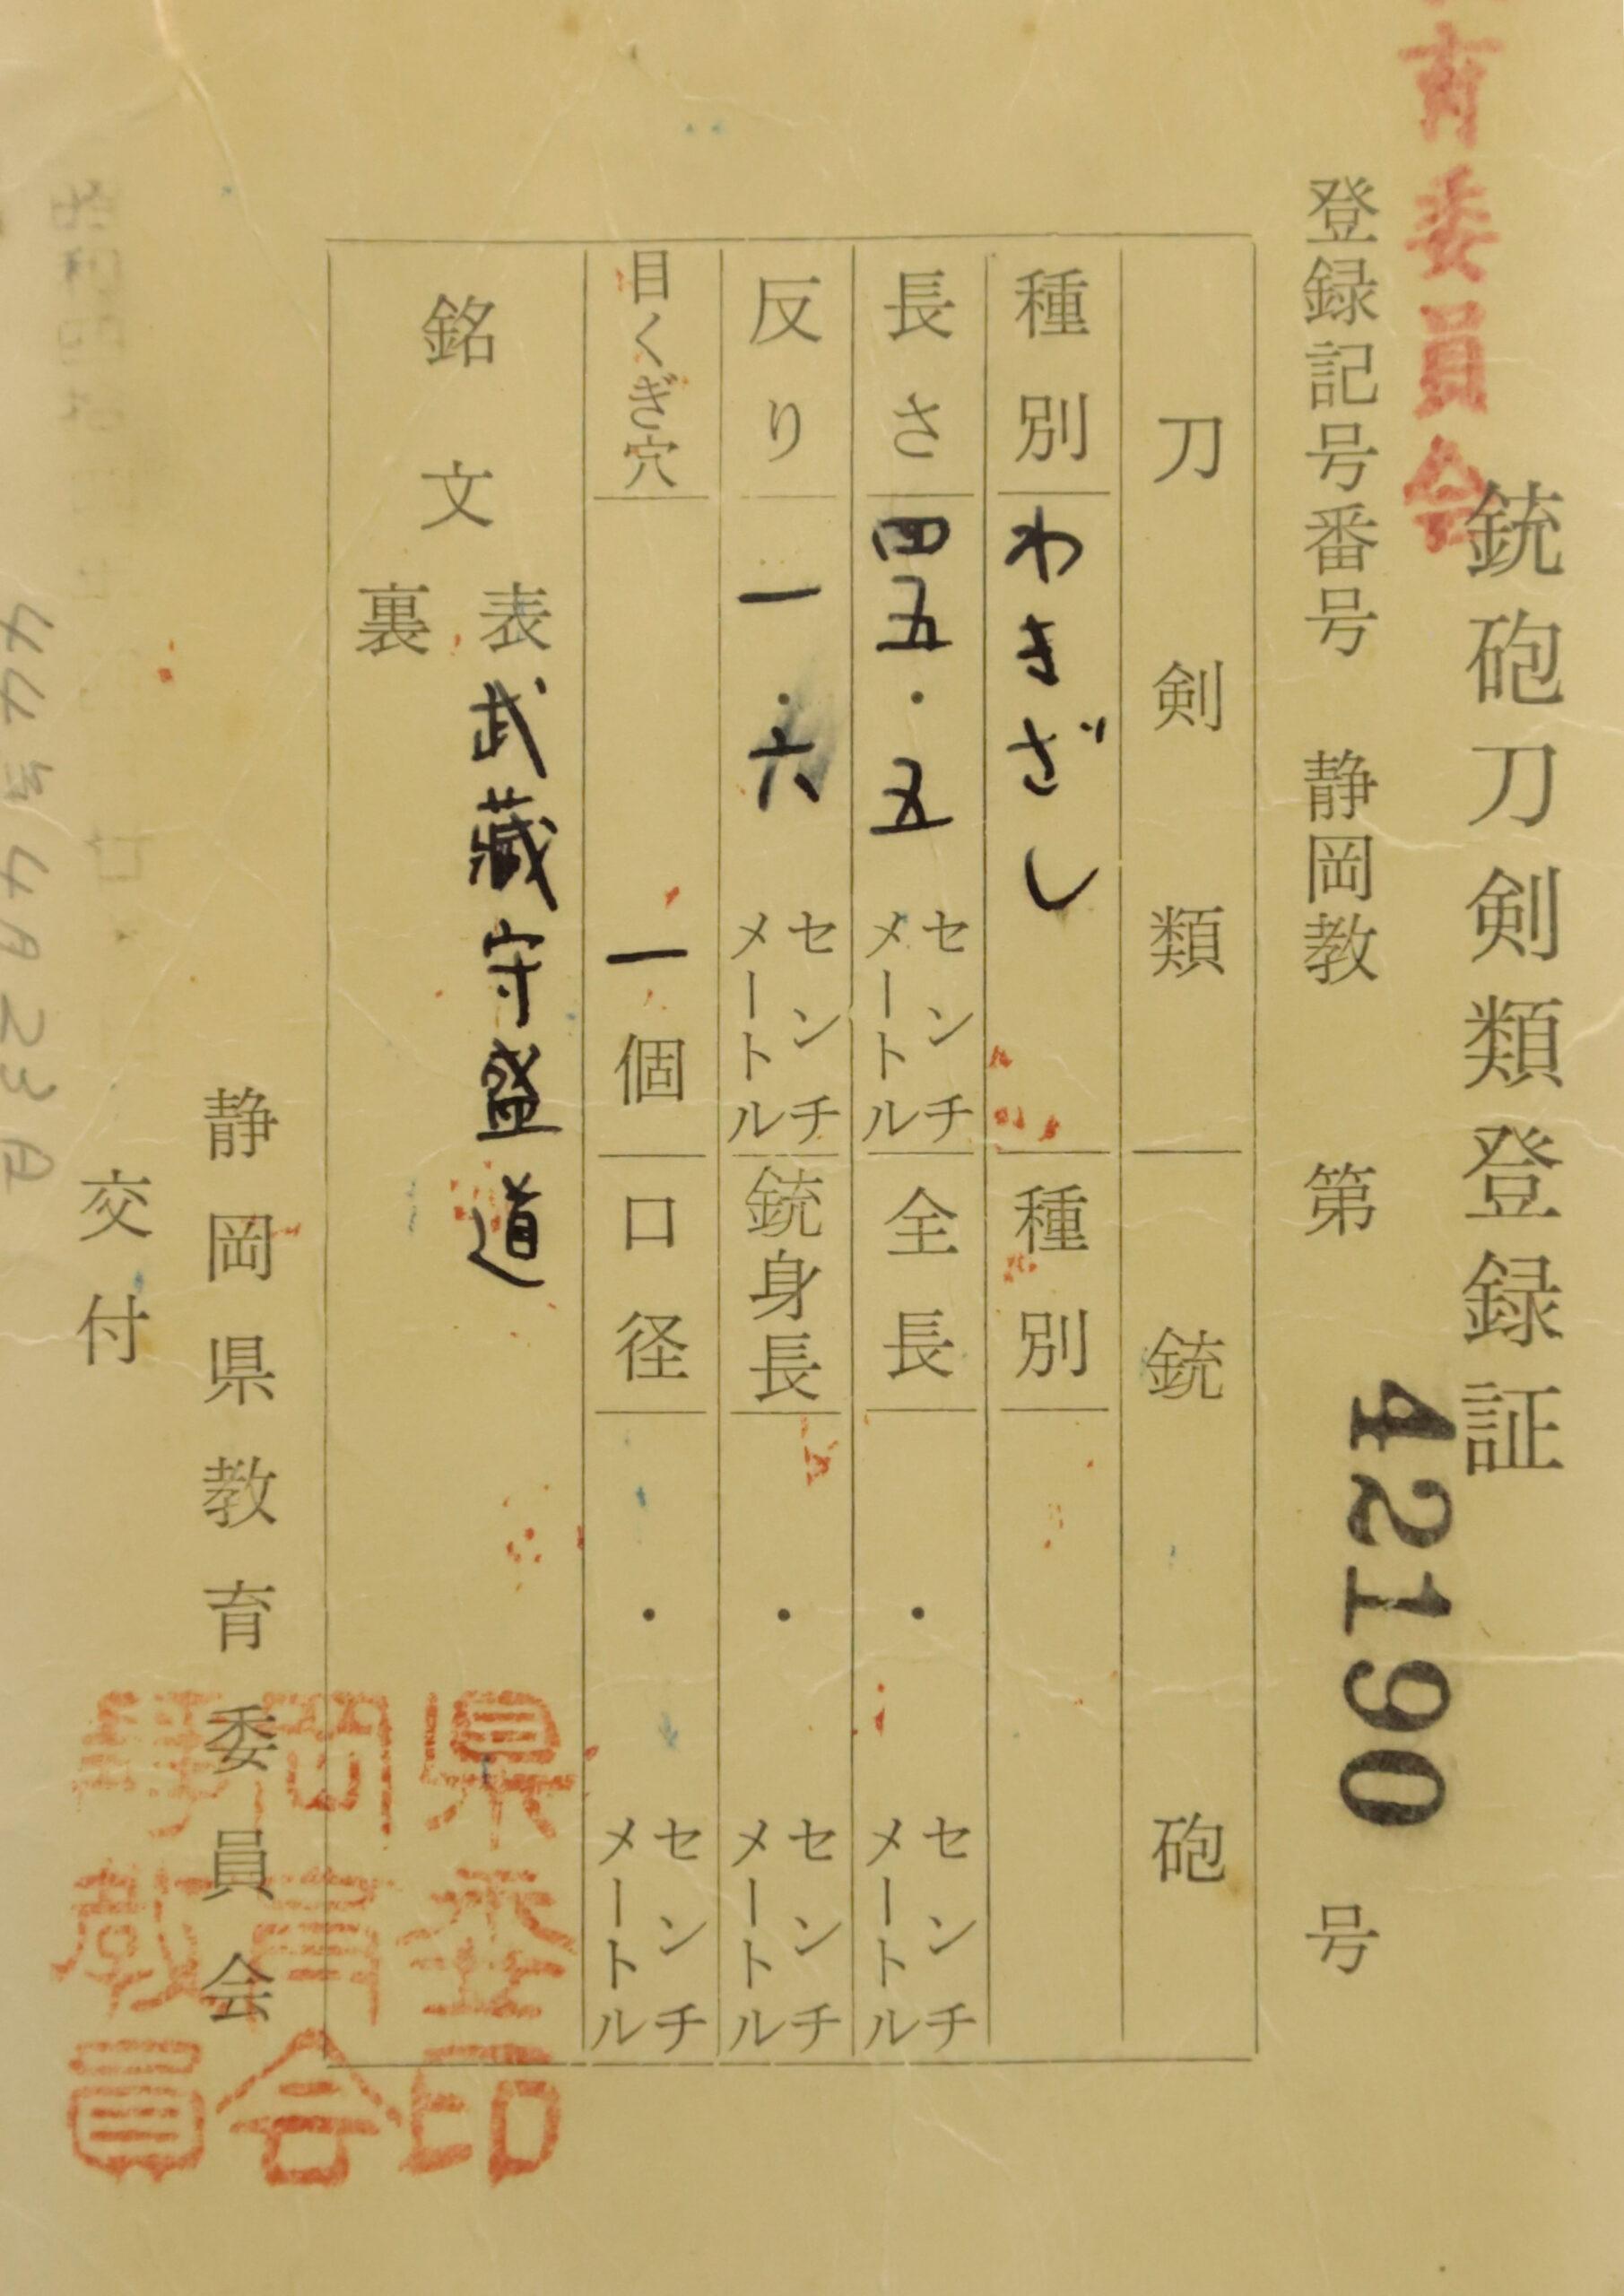 育委員会
銃砲刀剣類登録証
登録記号番号 静岡教 第 42190 号
刀剣類 銃砲
種別 わきざし 種別
長さ 四五・五 センチメートル 全長 ・ センチメートル
反り 一・六 センチメートル 銃身長 ・ センチメートル
目くぎ穴 一個 口径 ・ センチメートル
銘文 表 武蔵守盛道
裏
静岡県教育委員会
交付
44年4月23日
静岡県教育委員会印